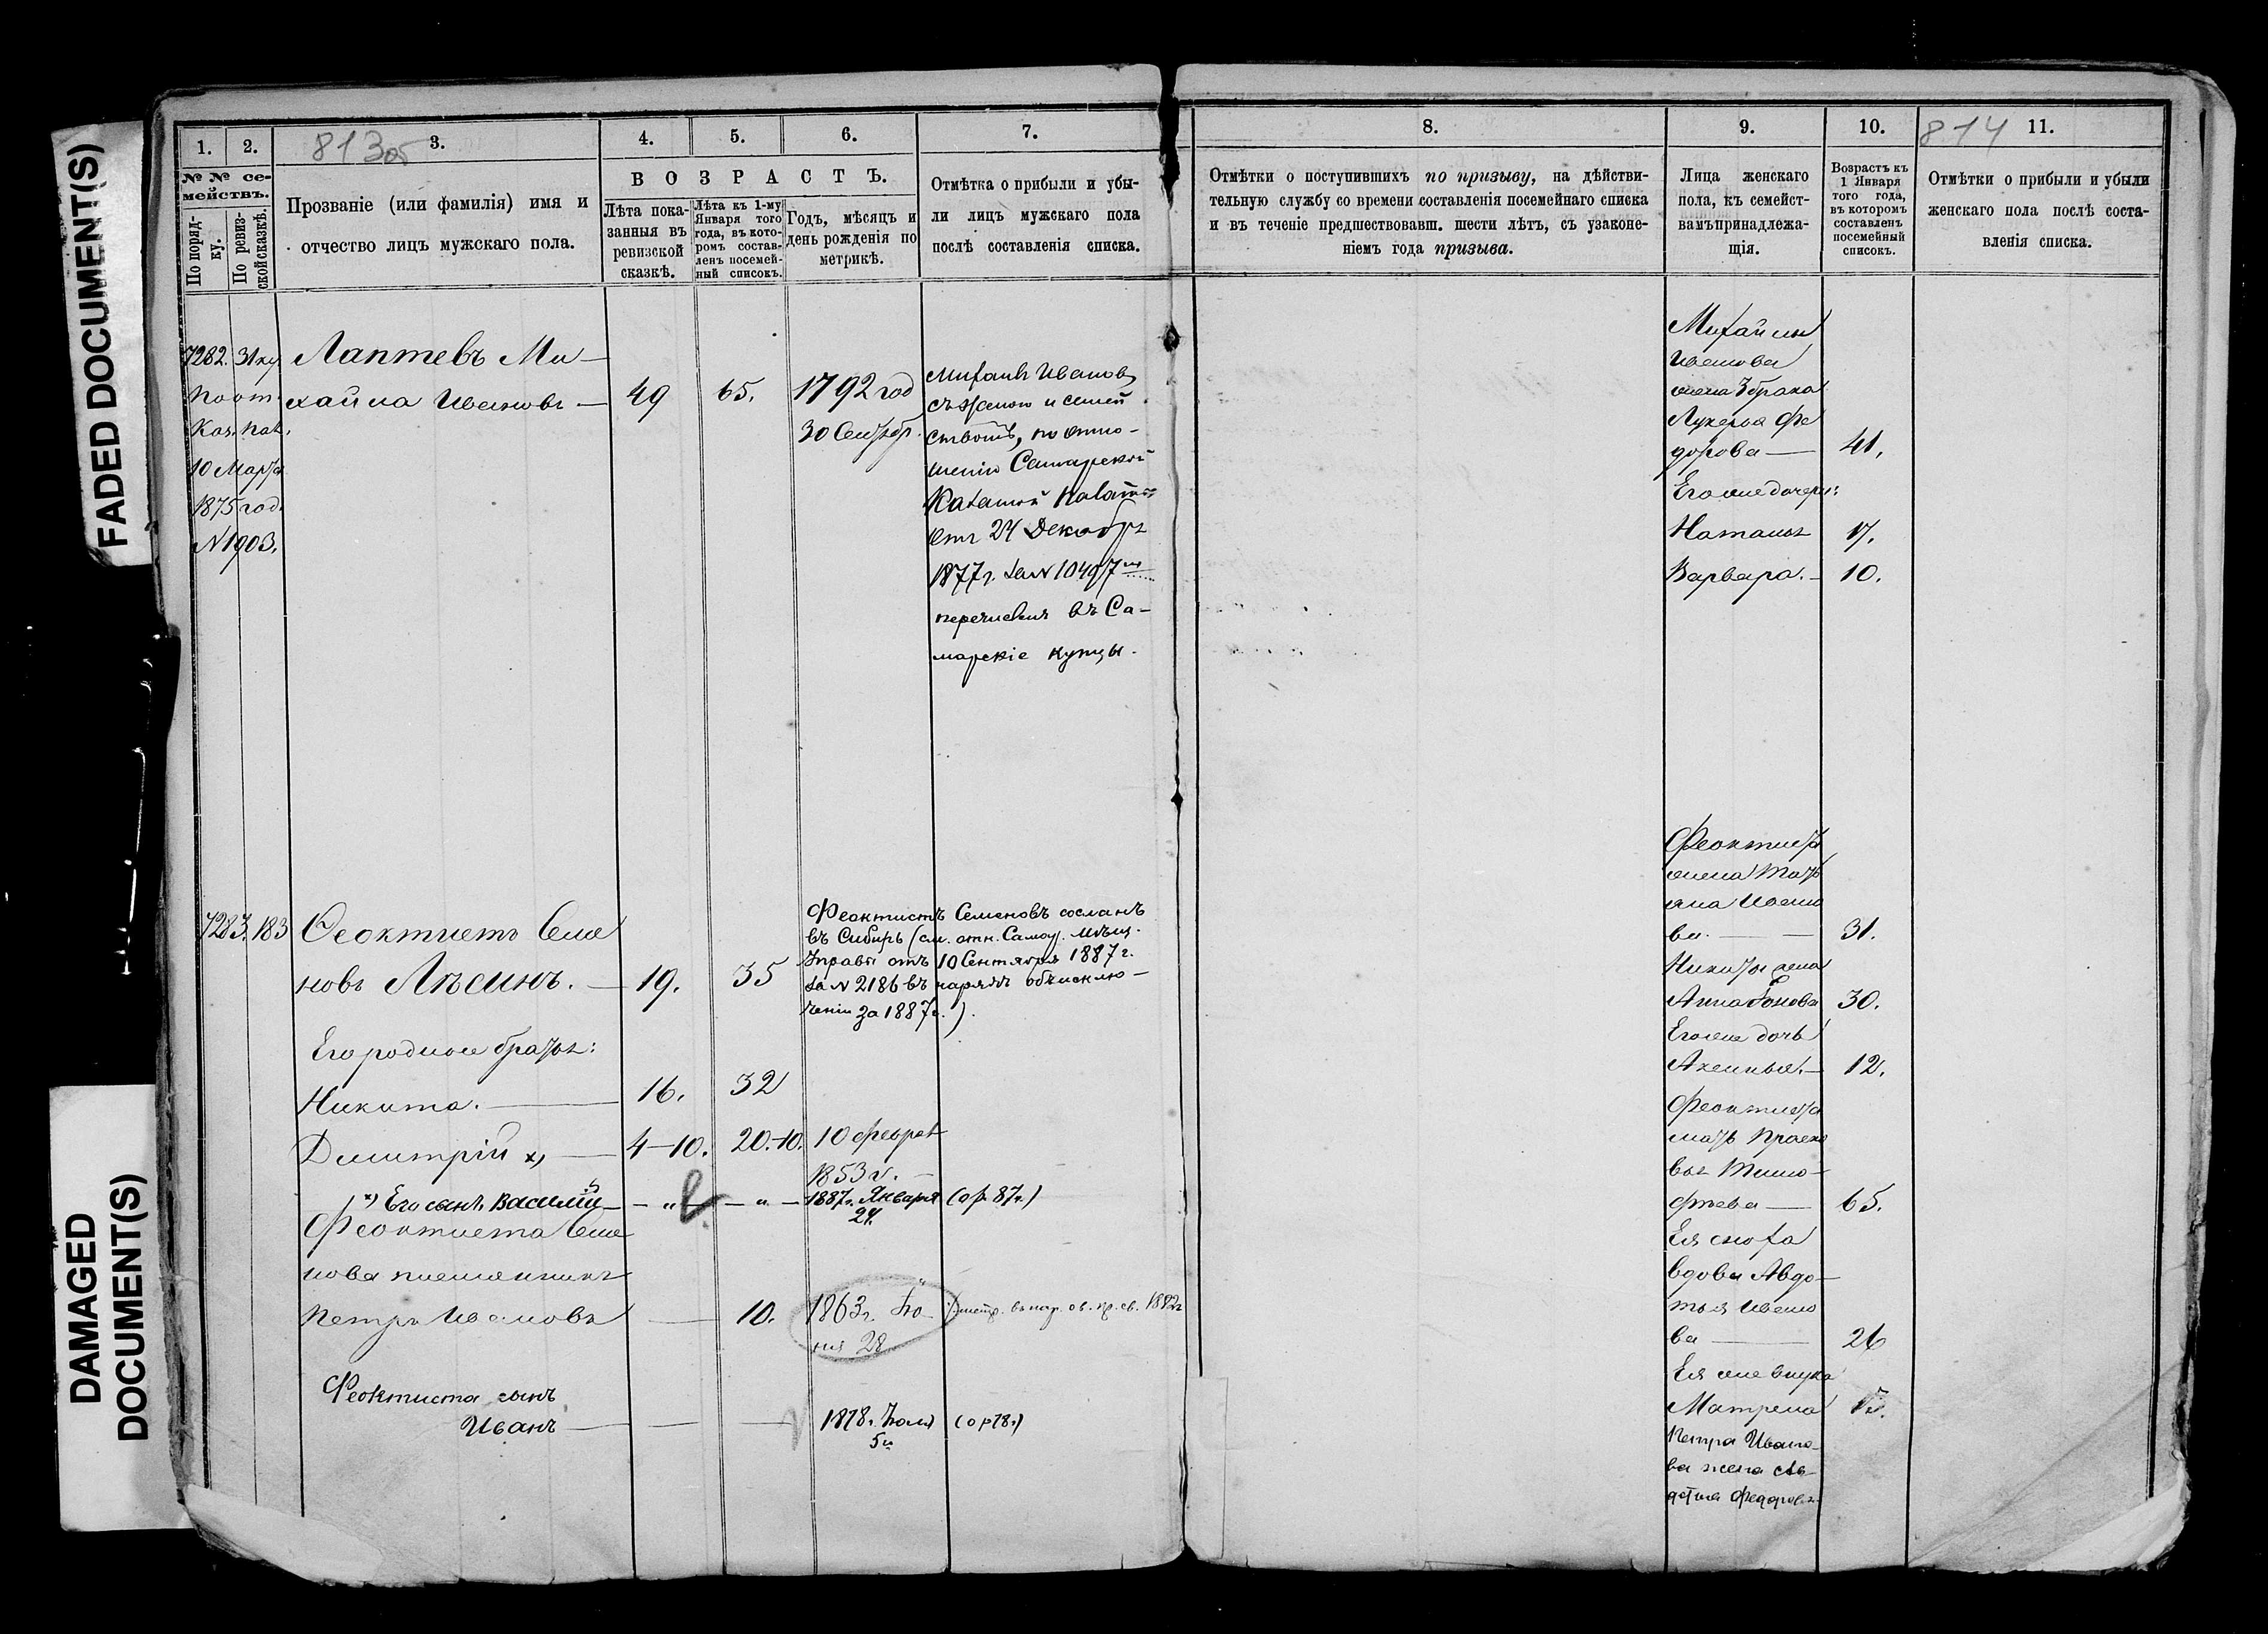 FADED DOCUMENT(S)
DAMAGED
DOCUMENT(S)
813об
1. 2. 3. 4. 5. 6. 7.
№ № се-
мействъ.
По поряд-
ку.
По ревиз-
ской сказкѣ.
Прозваніе (или фамилія) имя и
отчество лицъ мужскаго пола.
ВОЗРАСТЪ.
Лѣта пока-
занныя въ
ревизской
сказкѣ.
Лѣта къ 1-му
Января того
года, въ кото-
ромъ состав-
ленъ посемей-
ный списокъ.
Годъ, мѣсяцъ и
день рожденія по
метрикѣ.
Отмѣтка о прибыли и убы-
ли лицъ мужскаго пола
послѣ составленія списка.
7282. 31 ку
по от.
Каз. пал.
10 Марта
1875 год.
№ 1903.
Лаптевъ Ми-
хайла Ивановъ — 49 65. 1792 год
30 Сентябр.
Михаилъ Ивановъ
съ женою и семей
ствомъ, по отно-
шенію Самарской
Казенной Палаты
отъ 24 Декабря
1877 г. за № 10497
перечисленъ въ Са-
марскіе купцы.
7283. 183
Феоктистъ Семе
новъ Лѣсинъ. — 19. 35
Феоктистъ Семеновъ сосланъ
въ Сибирь (см. отн. Самар. Мѣщ.
Управы отъ 10 Сентября 1887 г.
за № 2186 въ нарядѣ объ исклю-
ченіи за 1887 г.).
Его родные братья:
Никита. — 16. 32
Димитрій х) — 4-10. 20.-10. 10 феврал
1853 г. —
х) Его сынъ Василий — „ — „ — 1887 г. Января (ор. 87 г.)
24.
Феоктиста Семе
нова племянникъ
Петръ Ивановъ — 10. 1863 г. Iю-
ня 28
1882 г.
Феоктиста сынъ
Иванъ — 1878 г. Іюля (ор 78 г.)
5 г.
8. 9. 10. 814 11.
Отмѣтки о поступившихъ по призыву, на дѣйстви-
тельную службу со времени составленія посемейнаго списка
и въ теченіе предшествовавш. шести лѣтъ, съ узаконе-
ніемъ года призыва.
Лица женскаго
пола, къ семейст-
вамъ принадлежа-
щія.
Возрастъ къ
1 Января
того года,
въ которомъ
составленъ
посемейный
списокъ.
Отмѣтки о прибыли и убыли
женскаго пола послѣ соста-
вленія списка.
Михайлы
Иванова
жена 3 брака
Лукерья Фе
дорова — 41.
Его же дочери:
Наталья 17.
Варвара. — 10.
Феоктиста
жена Тать
яна Ивано
ва. — 31.
Никиты жена
Анна 30.
Его же дочь
Аксинья. — 12.
Феоктиста
мать Праско
вья Тимо-
феева — 65.
Ея сноха
вдова Авдо-
тья Ивано
ва — 26
Ея же внука
Матрена 15.
Петра Ивано-
ва жена Ав-
дотья Федорова